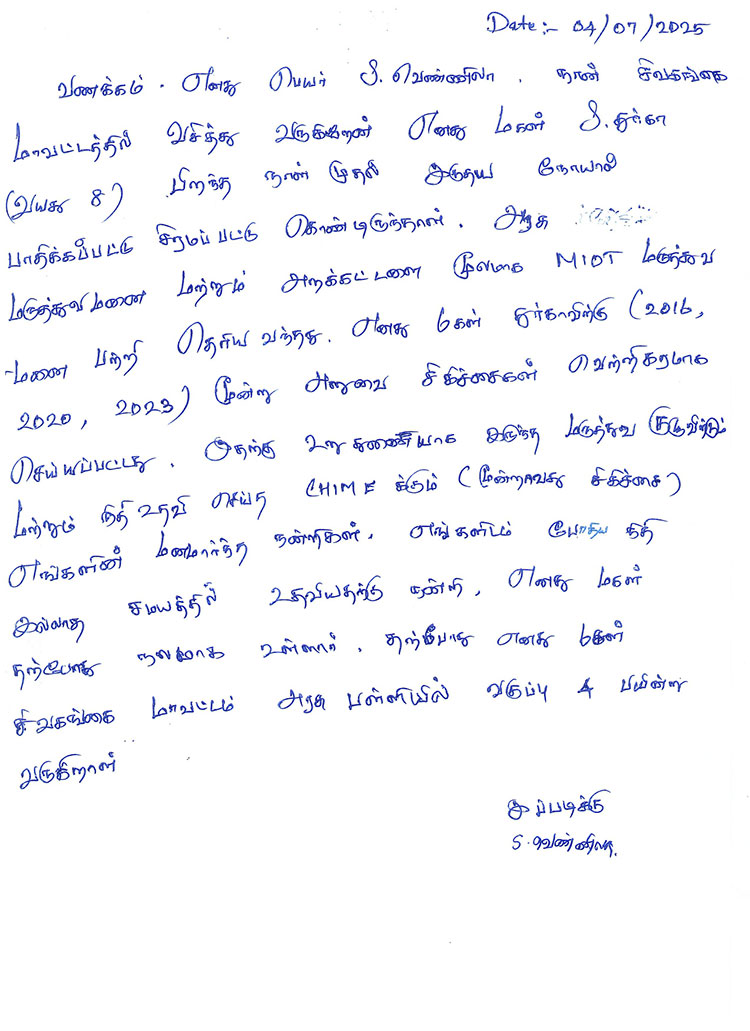 Date :- 04/07/2025
வணக்கம். எனது பெயர் S. வெண்ணிலா. நான் சிவகங்கை
மாவட்டத்தில் வசித்து வருகிறேன் எனது மகள் S. துர்கா
(வயது 8) பிறந்த நாள் முதல் இருதய நோயால்
பாதிக்கப்பட்டு சிரமப்பட்டு கொண்டிருந்தாள். அரசு
மருத்துவமனை மற்றும் அறக்கட்டளை மூலமாக MIOT மருத்துவ
-மனை பற்றி தெரிய வந்தது. எனது மகள் துர்காவிற்கு (2016,
2020, 2023) மூன்று அறுவை சிகிச்சைகள் வெற்றிகரமாக
செய்யப்பட்டது. அதற்கு உறுதுணையாக இருந்த மருத்துவ குழுவிற்கும்
மற்றும் நிதி உதவி செய்த CHIME க்கும் (மூன்றாவது சிகிச்சை)
எங்களின் மனமார்ந்த நன்றிகள். எங்களிடம் போதிய நிதி
இல்லாத சமயத்தில் உதவியதற்கு நன்றி, எனது மகள்
தற்போது நலமாக உள்ளார். தற்போது எனது மகள்
சிவகங்கை மாவட்டம் அரசு பள்ளியில் வகுப்பு 4 பயின்று
வருகிறாள்
இப்படிக்கு
S. வெண்ணிலா.